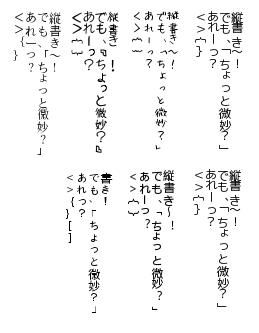 縦書き〜！
でも、「ちょっと微妙？」
あれーっ？
＜＞｛｝
縦書き〜！
でも、「ちょっと微妙？」
あれーっ？
＜＞｛｝
縦書き〜！
でも、「ちょっと微妙？」
あれーっ？
＜＞｛｝
縦書き〜！
でも、「ちょっと微妙？」
あれーっ？
＜＞｛｝
縦書き〜！
でも、「ちょっと微妙？」
あれーっ？
＜＞｛｝
縦書き〜！
でも、「ちょっと微妙？」
あれーっ？
＜＞｛｝
書き！
でも、「ちょっと微妙？」
あれっ？
＜＞｛｝［］